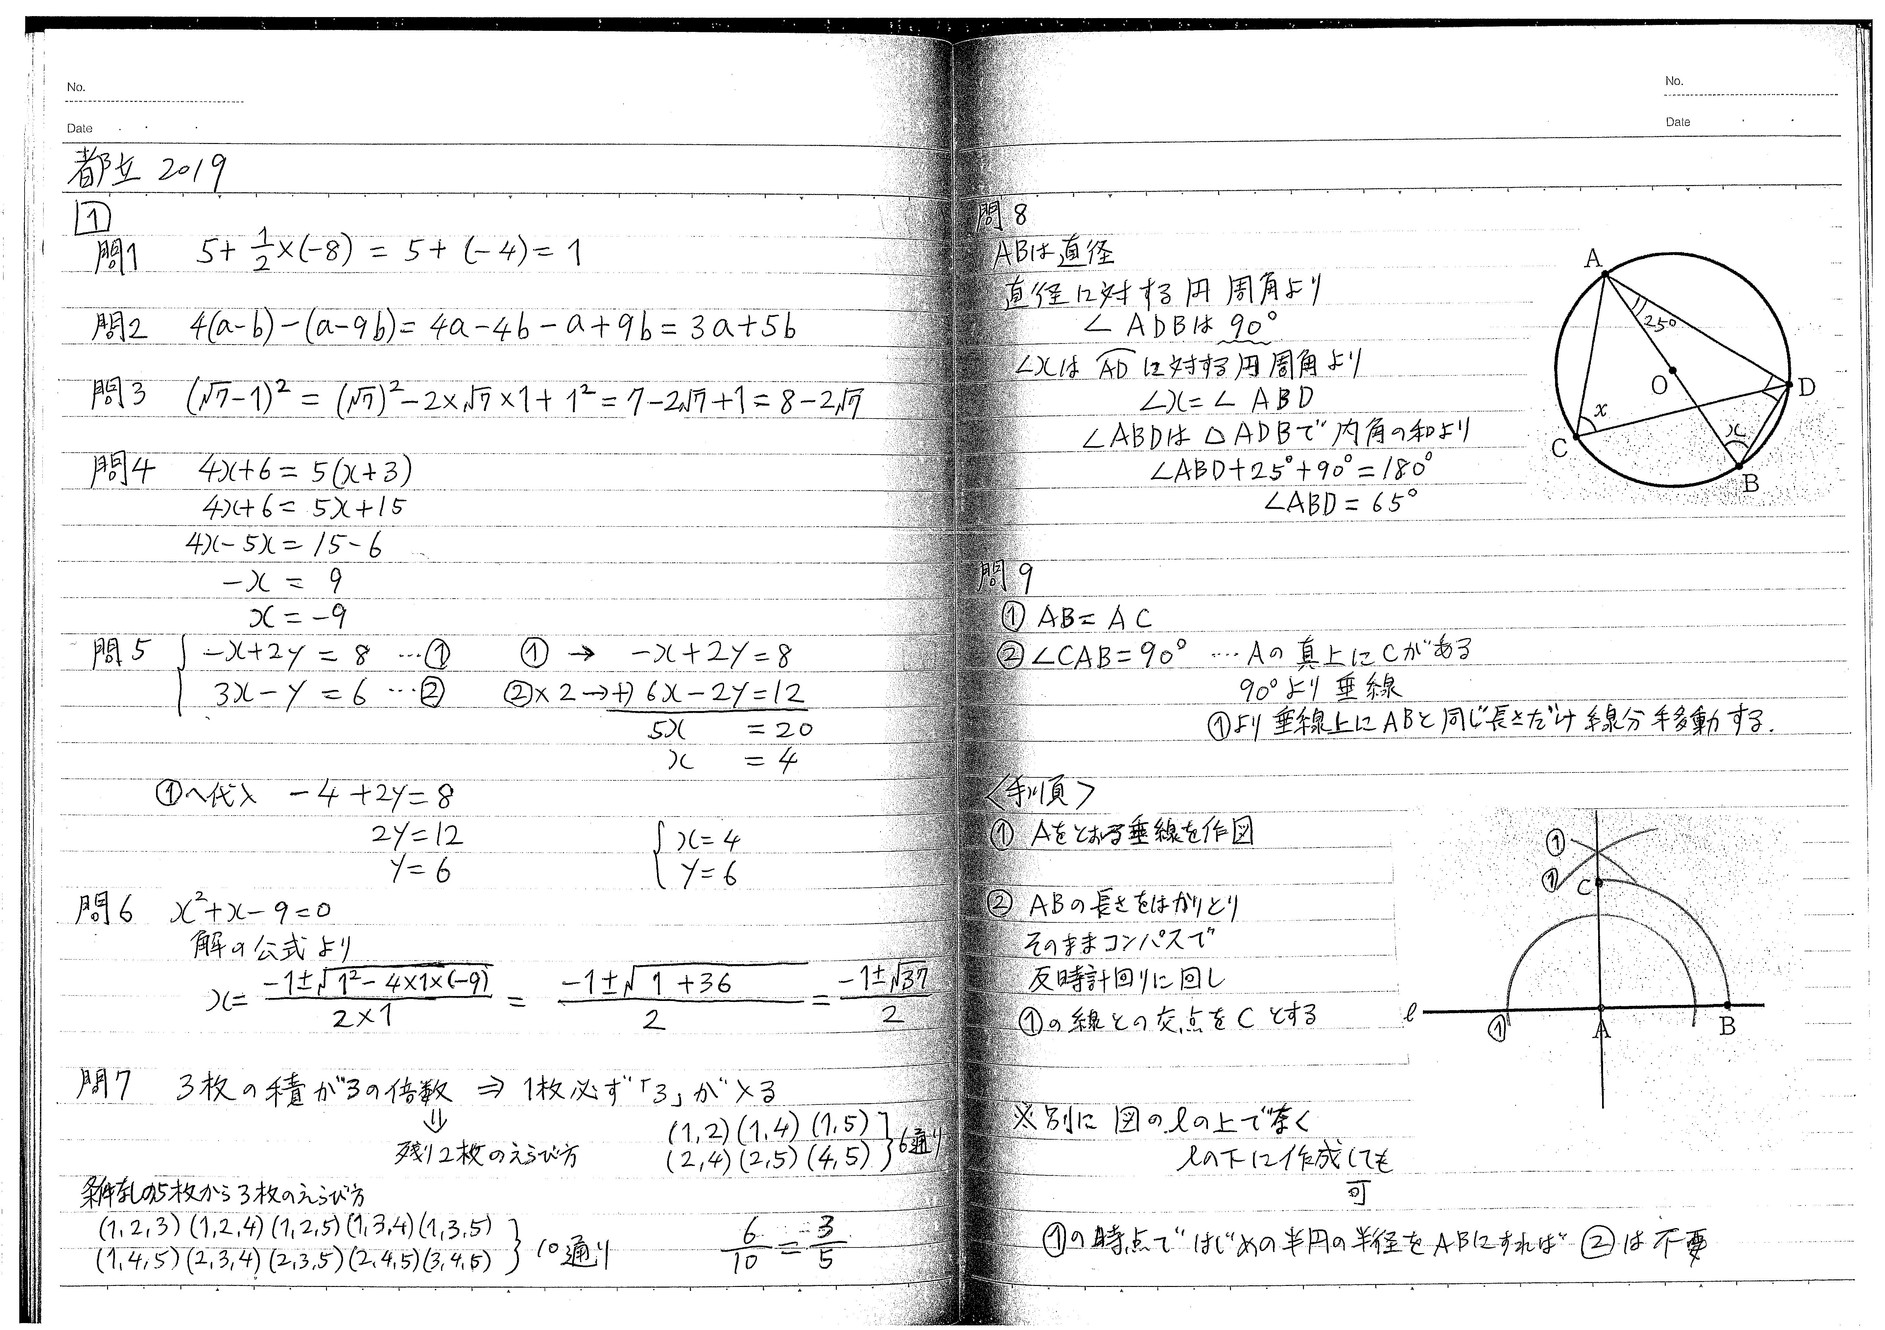 No.
Date
都立 2019
1
問1 5+1/2×(-8) = 5+(-4)= 1
問2 4(a-b)-(a-9b)= 4a-4b-a+9b= 3a+5b
問3 (√7-1)² = (√7)²-2×√7×1+1²= 7-2√7+1= 8-2√7
問4 4x+6= 5(x+3)
4x+6= 5x+15
4x-5x= 15-6
-x = 9
x = -9
問5 { -x+2y = 8 …① ① → -x+2y=8
3x-y = 6 …② ②×2→+) 6x-2y=12
5x =20
x =4
①へ代入 -4+2y=8
2y=12 { x=4
y=6 y=6
問6 x²+x-9=0
解の公式より
x= (-1±√(1²-4×1×(-9)))/(2×1) = (-1±√(1+36))/2 = (-1±√37)/2
問7 3枚の積が3の倍数 ⇒ 1枚必ず「3」が入る
⇓ (1,2)(1,4)(1,5)
残り2枚のえらび方 (2,4)(2,5)(4,5) } 6通り
条件なしの5枚から3枚のえらび方
(1,2,3)(1,2,4)(1,2,5)(1,3,4)(1,3,5)
(1,4,5)(2,3,4)(2,3,5)(2,4,5)(3,4,5) } 10通り 6/10 = 3/5
No.
Date
問8
ABは直径
直径に対する円周角より
∠ADBは90°
∠xはADに対する円周角より
∠x=∠ABD
∠ABDは△ADBで内角の和より
∠ABD+25°+90°=180°
∠ABD=65°
A
25°
O
D
x
x
C
B
問9
① AB=AC
② ∠CAB=90° …Aの真上にCがある
90°より垂線
①より垂線上にABと同じ長さだけ線分移動する.
<手順>
① Aをとおる垂線を作図
② ABの長さをはかりとり
そのままコンパスで
反時計回りに回し
①の線との交点をCとする
①
①
C
ℓ ① A B
※別に図のℓの上でなく
ℓの下に作成しても
可
①の時点ではじめの半円の半径をABにすれば②は不要